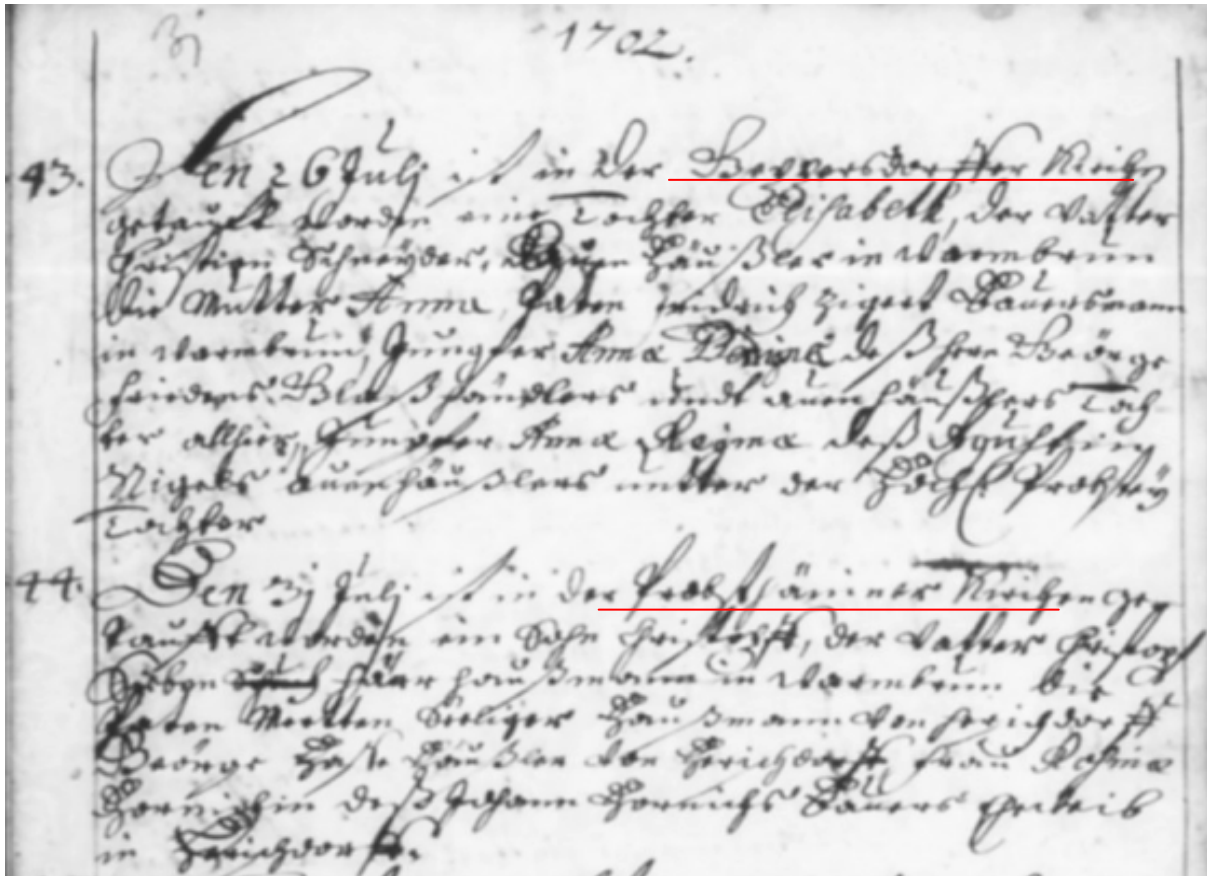 31
1702.
43. Den 26 Julij ist in der Geppersdorffer Kirchen
getaufft worden eine Tochter Elisabeth, der Vatter
Christian Schneyder, Häußler in Warmbrun
die Mutter Anna, Paten Friedrich Bauersmann
in Warmbrun, Jungfer Anna Regina deß Herr George
Glaß händlers undt auenhäußlers Toch-
ter allhier, Jungfer Anna Regina deß
auenhäußlers untter der Probstey
Tochter
44. Den 31 Julij ist in der Probsthäiner Kirchen ge-
taufft worden ein Sohn Christoff, der Vatter Christoph
haußmann in Warmbrun die
Paten Merten Seeliger Haußmann von Herichdorff
George Hase Häußler von Herichdorff, Frau Rosina
Hornichin deß Johann Hornichs Bauers Eheweib
in Herichdorff.